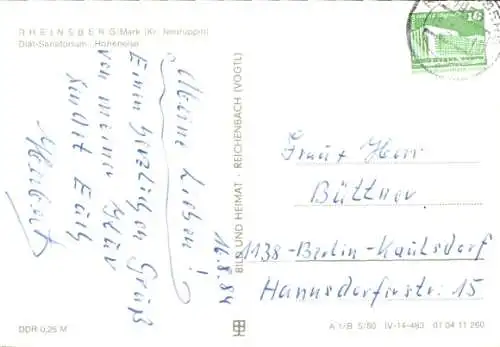 RHEINSBERG/Mark (Kr. Neuruppin)
Diät-Sanatorium "Hohenelse"
Meine Lieben!
16.8.84
Einen herzlichen Gruß
von meiner Kur
sendet Euch
Herbert
BILD UND HEIMAT · REICHENBACH (VOGTL)
10
Frau + Herr
Büttner
1138-Berlin-Kaulsdorf
Hannsdorferstr. 15
DDR 0,25 M
A 1/B 5/80 IV-14-483 01 04 11 260